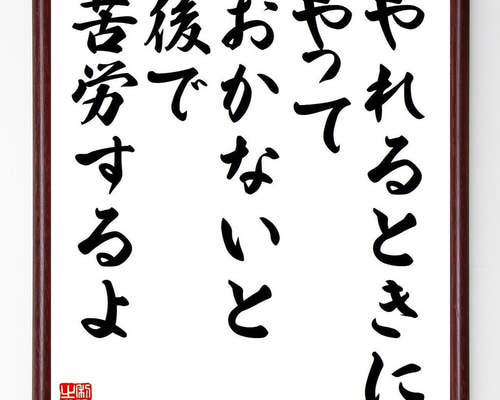 やれるときに
やって
おかないと
後で
苦労するよ